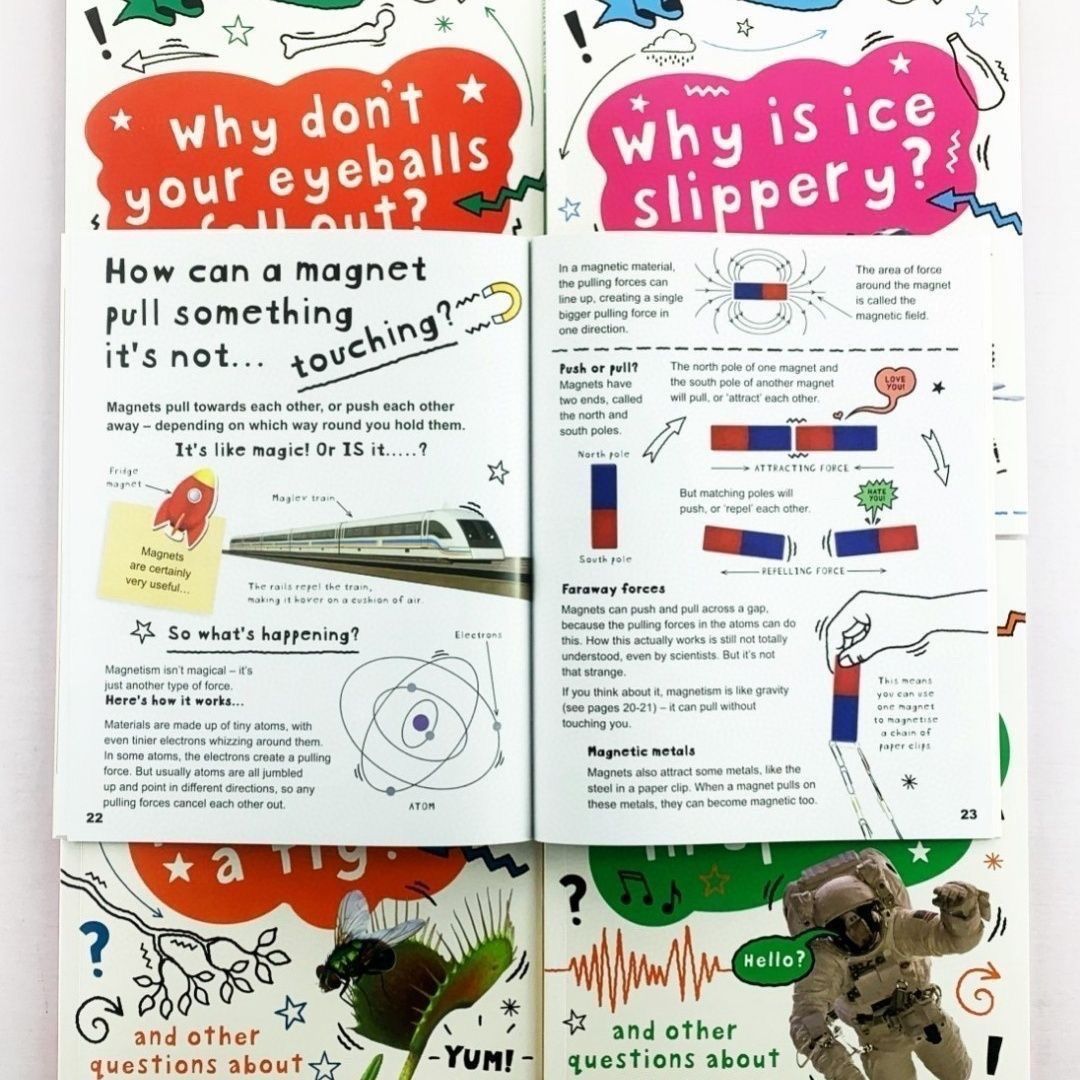 !
why don't
your eyeballs
out?
!
why is ice
slippery?
How can a magnet
pull something
it's not... touching?
Magnets pull towards each other, or push each other
away – depending on which way round you hold them.
It's like magic! Or IS it.....?
Fridge
magnet
Maglev train
Magnets
are certainly
very useful...
The rails repel the train,
making it hover on a cushion of air.
So what's happening?
Magnetism isn't magical – it's
just another type of force.
Here's how it works...
Materials are made up of tiny atoms, with
even tinier electrons whizzing around them.
In some atoms, the electrons create a pulling
force. But usually atoms are all jumbled
up and point in different directions, so any
pulling forces cancel each other out.
Electrons
ATOM
22
In a magnetic material,
the pulling forces can
line up, creating a single
bigger pulling force in
one direction.
The area of force
around the magnet
is called the
magnetic field.
Push or pull?
Magnets have
two ends, called
the north and
south poles.
North pole
South pole
The north pole of one magnet and
the south pole of another magnet
will pull, or 'attract' each other.
LOVE
YOU!
ATTRACTING FORCE
But matching poles will
push, or 'repel' each other.
HATE
YOU!
REPELLING FORCE
Faraway forces
Magnets can push and pull across a gap,
because the pulling forces in the atoms can do
this. How this actually works is still not totally
understood, even by scientists. But it's not
that strange.
If you think about it, magnetism is like gravity
(see pages 20-21) – it can pull without
touching you.
Magnetic metals
Magnets also attract some metals, like the
steel in a paper clip. When a magnet pulls on
these metals, they can become magnetic too.
This means
you can use
one magnet
to magnetise
a chain of
paper clips
23
a fly?
?
and other
questions about
-YUM!-
?
Hello?
and other
questions about
!